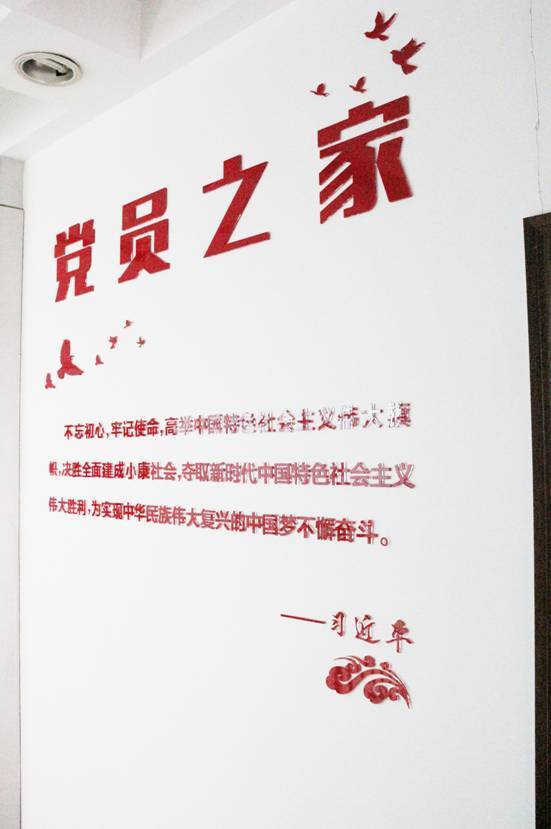 党员之家
不忘初心,牢记使命,高举中国特色社会主义伟大旗
帜,决胜全面建成小康社会,夺取新时代中国特色社会主义
伟大胜利,为实现中华民族伟大复兴的中国梦不懈奋斗。
——习近平